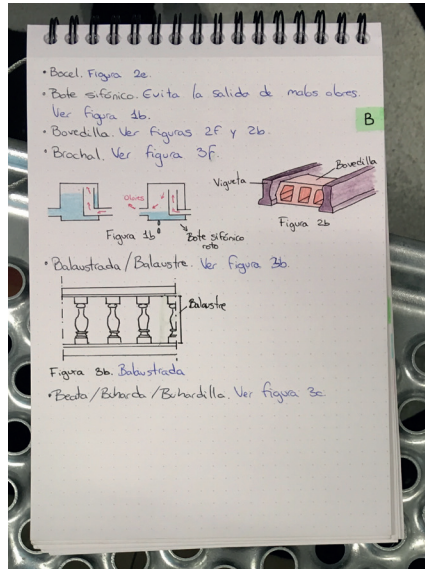 • Bocel. Figura 2e.
• Bote sifónico. Evita la salida de malos olores.
Ver figura 1b.
B
• Bovedilla. Ver figuras 2f y 2b.
• Brochal. Ver figura 3f.
Bovedilla
Vigueta
Olores
Figura 2b
Figura 1b
Bote sifónico
roto
• Balaustrada/Balaustre. Ver figura 3b.
Balaustre
Figura 3b. Balaustrada
• Beata/Buharda/Buhardilla. Ver figura 3c.